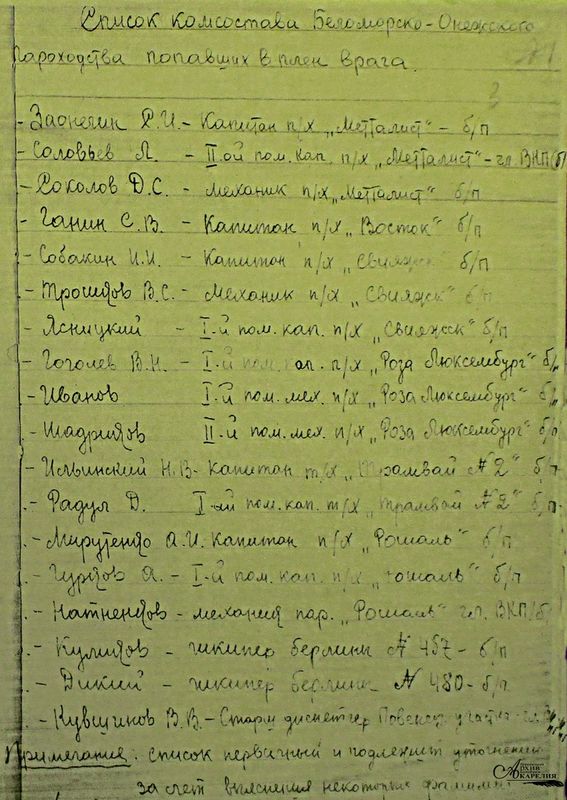 Список комсостава Беломорско-Онежского
пароходства попавших в плен врага.
- Заонегин Р.И. - Капитан п/х „Метталист" - б/п
- Соловьев Л. - II-ой пом. кап. п/х „Метталист" - чл. ВКП(б)
- Соколов Д.С. - механик п/х „Метталист" б/п
- Ганин С.В. - Капитан п/х „Восток" б/п
- Собакин И.И. - Капитан п/х „Свияжск" б/п
- Трошков В.С. - Механик п/х „Свияжск" б/п
- Ясницкий - I-й пом. кап. п/х „Свияжск" б/п
- Гоголев В.Н. - I-й пом. кап. п/х „Роза Люксембург" б/п
- Иванов I-й пом. мех. п/х „Роза Люксембург" б/п
- Шадриков II-й пом. мех. п/х „Роза Люксембург" б/п
- Ильинский Н.В - Капитан т/х „Трамвай № 2" б/п
- Радул Д. I-ый пом. кап. т/х „Трамвай № 2" б/п.
- Мирутенко А.И. Капитан п/х „Рошаль" б/п
- Гурков А. - I-й пом. кап. п/х „Рошаль" б/п
- Натненков - механик пар. „Рошаль" чл. ВКП/б/
- Куликов - шкипер берлины № 457 - б/п
- Дикий - шкипер берлины № 480 - б/п
- Кувшинов В.В. - Старш диспетчер Повенец участка
Примечание: список первичный и подлежит уточнению
за счет выяснения некоторых фамилий
Архив Карелия